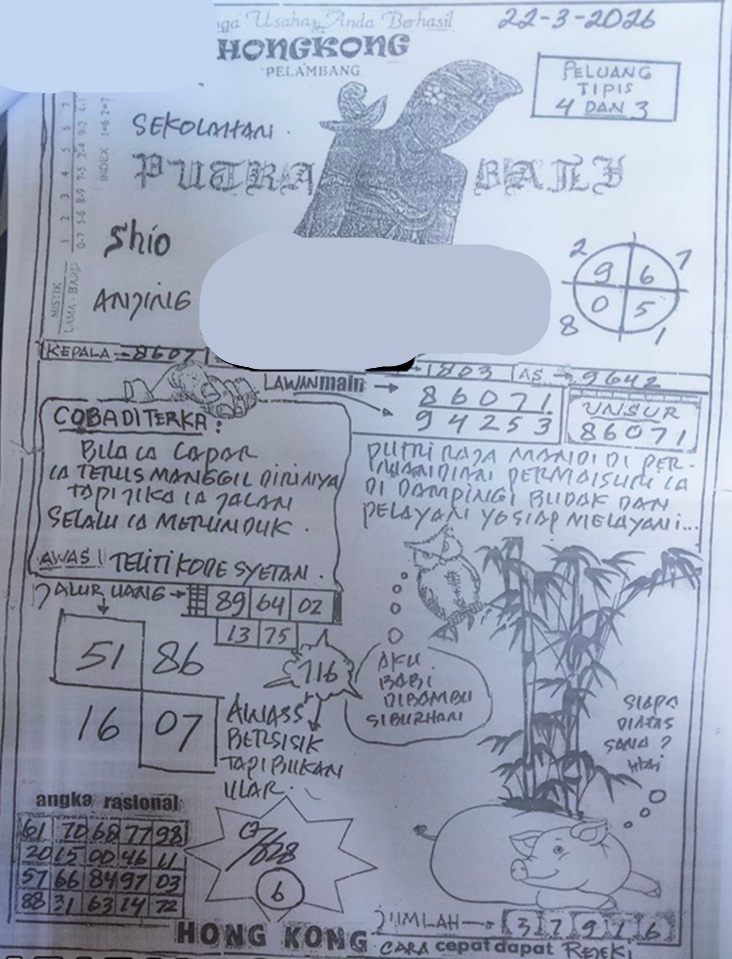 Usaha Anda Berhasil
22-3-2026
HONGKONG
PELAMBANG
PELUANG
TIPIS
4 DAN 3
SEKOLAHAN.
PUTRA BALI
INDEX 1=6 2=7
MISTIK
LAMA - BARU
Shio
ANJING
2 7
9 6
0 5
8 1
KEPALA → 8607
→ 1803 AS → 9642
LAWAN main →
86071
94253
UNSUR
86071
COBA DITERKA:
BILA LA LAPAR
LA TERUS MANGGIL DIRINIYA
TAPI JIKA LA JALAN
SELALU LA MERUNDUK.
AWAS! TELITI KODE SYETAN.
PUTRI RAJA MANDI DI PER-
MANDIAN PERMAISURI LA
DI DAMPINGI BUDAK DAN
PELAYAN YG SIAP MELAYANI...
JALUR UANG → 89 64 02
13 75
51 86
16 07
716
AWASS
BERSISIK
TAPI BUKAN
ULAR.
AKU
BABI
DIBAMBU
SIBURHAN
SIAPA
DIATAS
SANA?
HAI
angka rasional
61 70 68 77 98
20 15 00 46 11
57 66 84 97 03
88 31 63 14 72
6
JUMLAH → 3 7 9 1 6
HONG KONG CARA cepat dapat REJEKI